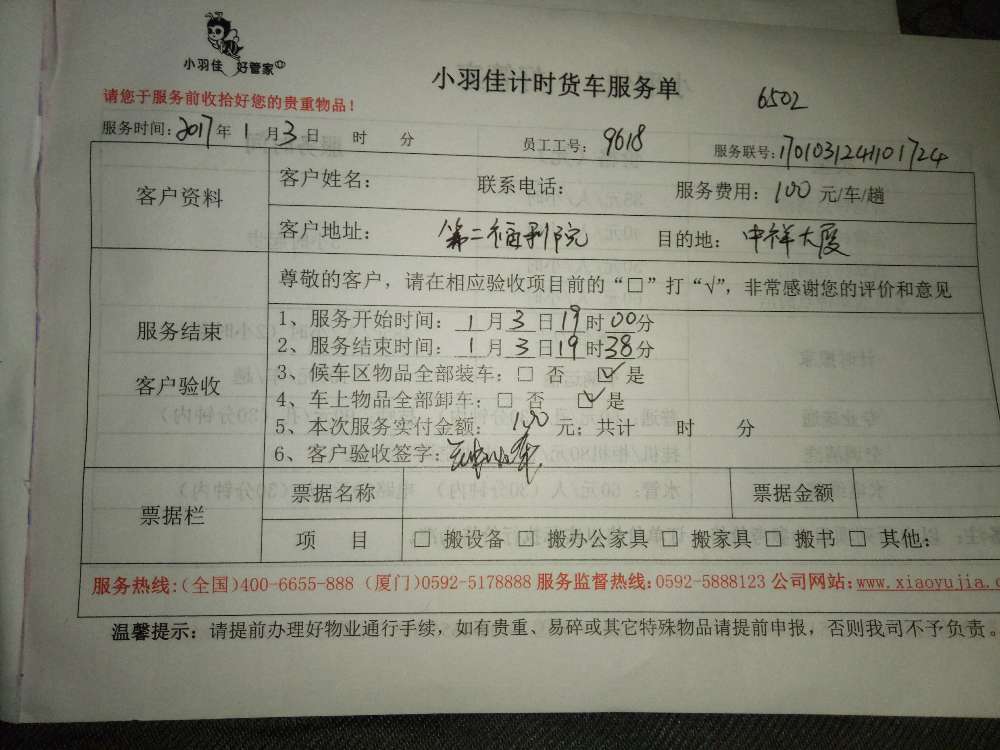 小羽佳 好管家
小羽佳计时货车服务单
6502
请您于服务前收拾好您的贵重物品！
服务时间：2017年 1 月 3 日 时 分 员工工号：9618 服务联号：1701031241101724
客户资料
客户姓名： 联系电话： 服务费用：100元/车/趟
客户地址： 第二福利院 目的地： 中祥大厦
服务结束
客户验收
尊敬的客户，请在相应验收项目前的“□”打“√”，非常感谢您的评价和意见
1、服务开始时间：1月3日19时00分
2、服务结束时间：1月3日19时38分
3、候车区物品全部装车：□ 否 ☑是
4、车上物品全部卸车：□ 否 ☑是
5、本次服务实付金额：100元；共计 时 分
6、客户验收签字：
票据栏
票据名称 票据金额
项 目 □ 搬设备 □ 搬办公家具 □ 搬家具 □ 搬书 □ 其他：
服务热线:(全国)400-6655-888 (厦门)0592-5178888 服务监督热线:0592-5888123 公司网站:www.xiaoyujia.c
温馨提示：请提前办理好物业通行手续，如有贵重、易碎或其它特殊物品请提前申报，否则我司不予负责。